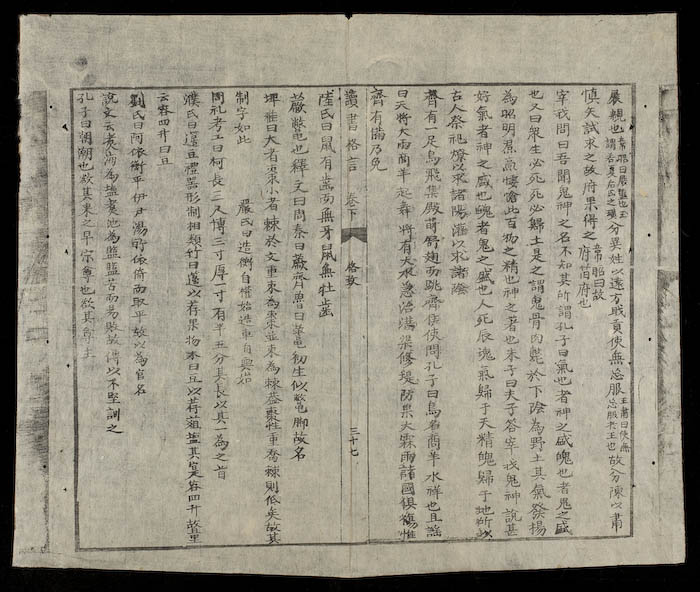 展親也韋昭曰展重也玉謂若夏后氏之璜分異姓以遠方職貢使無忘服王肅曰使無忘服於王也故分陳以肅
慎矢試求之故府果得之韋昭曰故府舊府也
宰我問曰吾聞鬼神之名不知其所謂孔子曰氣也者神之盛魄也者鬼之盛
也又曰眾生必死死必歸土是之謂鬼骨肉斃於下陰為野土其氣發揚
為昭明焄蒿悽愴此百物之精也神之著也朱子曰夫子答宰我鬼神說甚
好氣者神之盛也魄者鬼之盛也人死時魂氣歸于天精魄歸于地所以
古人祭祀燎以求諸陽灌以求諸陰
齊有一足鳥飛集殿前舒翅而跳齊侯使問孔子曰鳥名商羊水祥也且謠
曰天將大雨商羊起舞將有大水急治溝渠修堤防果大霖雨諸國俱傷惟
齊有備乃免
讀書格言 卷下 格致 三十七
陸氏曰鼠有齒而無牙鼠無牡齒
蕨虌也釋文曰周秦曰蕨齊魯曰虌初生似虌腳故名
埤雅曰大者棗小者棘於文重朿為棗並朿為棘蓋棗性重喬棘則低矣故其
制字如此 嚴氏曰造衡自權始造車自輿始
周礼考工曰柯長三尺博三寸厚一寸有半五分其長以其一為之首
濮氏曰籩豆禮器形制相類竹曰籩以荐果物木曰豆以荐菹醢其實容四升故里
云容四升曰豆
劉氏曰阿依衡平伊尹湯所依倚而取平故以為官名
說文云河為鹽池為監監苦而易敗故傳以不堅訓之
孔子曰潮也欲其來之早宗尊也欲其尊主